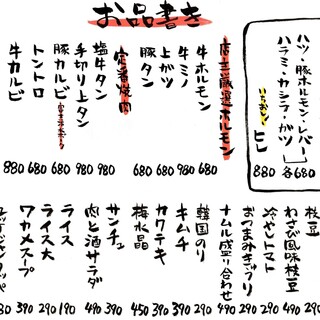 お品書き
ハツ・豚ホルモン・レバー
ハラミ・カシラ・ガツ 各680
いちおし!
ヒレ 880
店主厳選ホルモン
牛ホルモン 680
牛ミノ 980
上ガツ 680
豚タン 680
定番焼肉
塩牛タン 980
手切り上タン 980
豚カルビ 680
トントロ 680
牛カルビ 880
枝豆 29
わさび風味枝豆 490
冷やしトマト 290
おつまみきゅうり 290
ナムル盛り合わせ 490
韓国のり 290
キムチ 390
カクテキ 390
梅水晶 450
サンチュ 390
肉と酒サラダ 490
ライス 190
ライス大 290
ワカメスープ 390
80